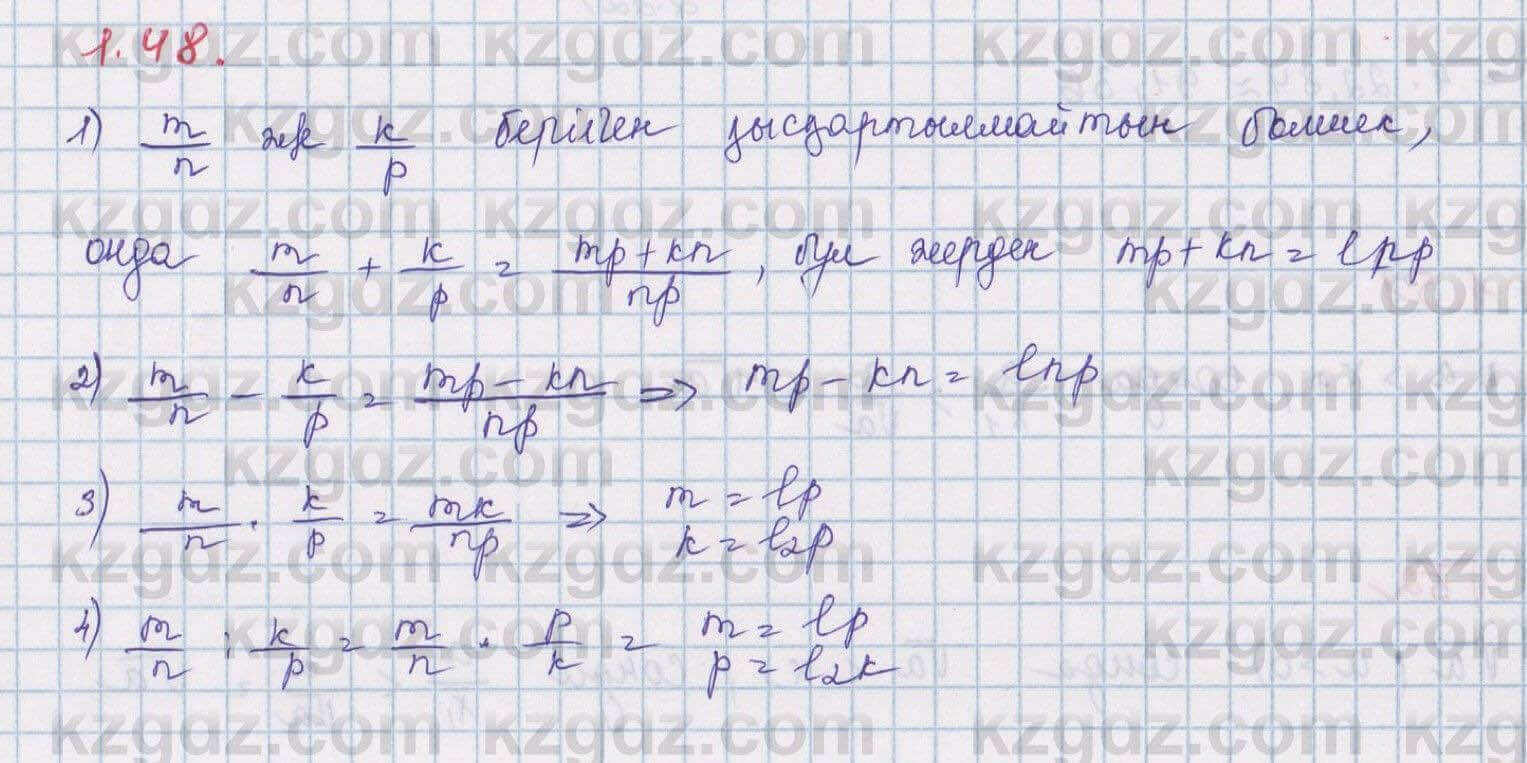 1.48.
1) m/n және k/p берілген қысқартылмайтын бөлшек,
онда m/n + k/p = mp+kn/np, бұл жерден mp+kn = lnp
2) m/n - k/p = mp-kn/np => mp-kn = lnp
3) m/n · k/p = mk/np => m = lp
k = l₂p
4) m/n : k/p = m/n · p/k = m = lp
p = l₂k
kzgdz.com